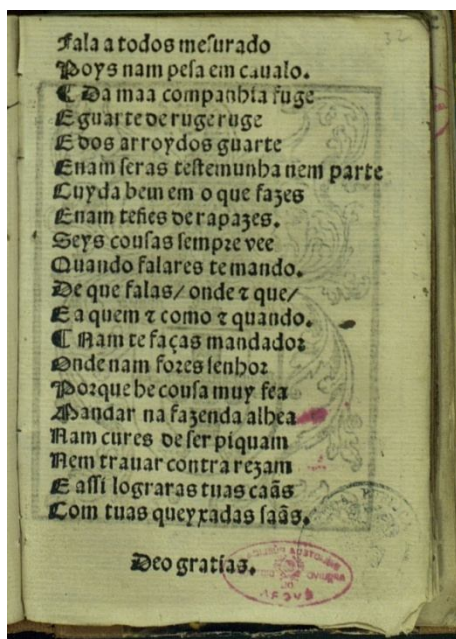 32
Fala a todos mesurado
Poys nam pesa em caualo.
¶ Da maa companhia fuge
E guarte de ruge ruge
E dos arroydos guarte
E nam seras testemunha nem parte
Cuyda bem em o que fazes
E nam tefies de rapazes.
Seys cousas sempre vee
Quando falares te mando.
De que falas/ onde ⁊ que/
E a quem ⁊ como ⁊ quando.
¶ Nam te faças mandador
Onde nam fores senhor
Porque he cousa muy fea
Mandar na fazenda alhea
Nam cures de ser piquam
Nem trauar contra rezam
E assi lograras tuas caãs
Com tuas queyxadas saãs.
Deo gratias.